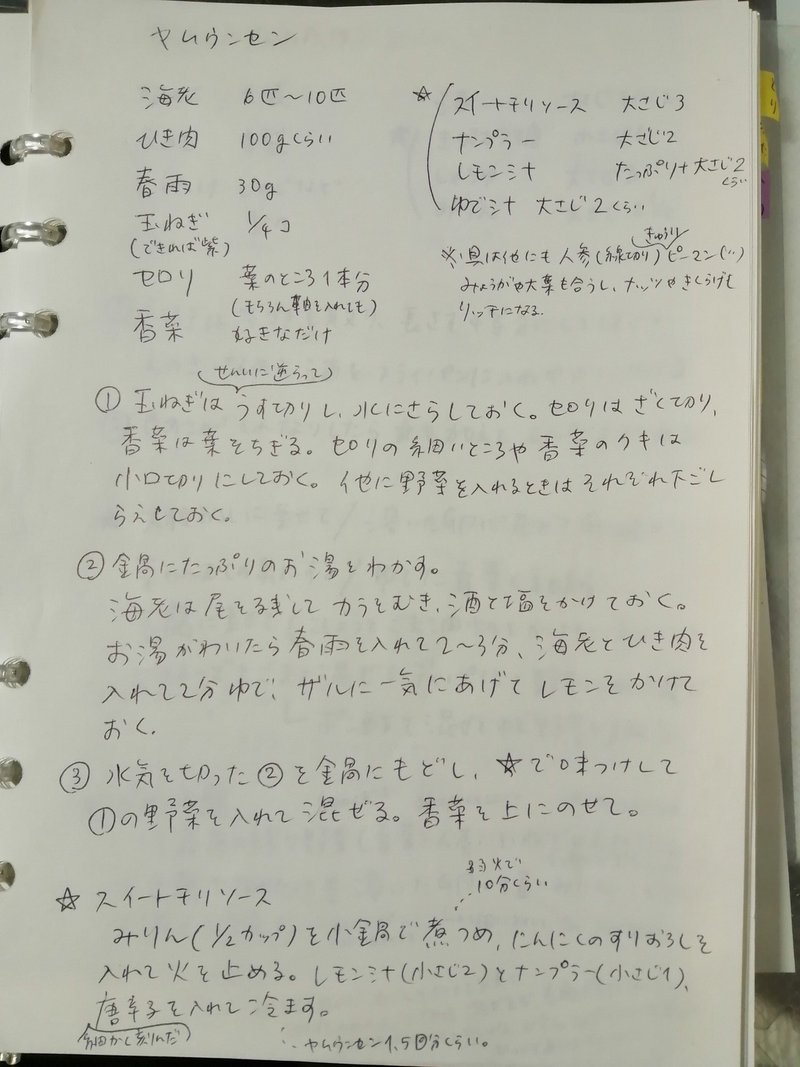 ヤムウンセン
海老 6匹〜10匹
ひき肉 100gくらい
春雨 30g
玉ねぎ 1/4コ
(できれば紫)
セロリ 葉のところ1本分
(もちろん茎を入れても)
香菜 好きなだけ
☆ スイートチリソース 大さじ3
ナンプラー 大さじ2
レモン汁 たっぷり+大さじ2
くらい
ゆで汁 大さじ2くらい
きゅうり
※具は他にも人参(線切り)ピーマン(〃)
みょうがや大葉も合うし、ナッツやきくらげも
リッチになる。
せんいに逆らって
① 玉ねぎはうす切りし、水にさらしておく。セロリはざく切り、
香菜は葉をちぎる。セロリの細いところや香菜のクキは
小口切りにしておく。他に野菜を入れるときはそれぞれ下ごし
らえしておく。
② 鍋にたっぷりのお湯をわかす。
海老は尾を残してカラをむき、酒と塩をかけておく。
お湯がわいたら春雨を入れて2〜3分、海老とひき肉を
入れて2分ゆで、ザルに一気にあげてレモンをかけて
おく。
③ 水気を切った②を鍋にもどし、☆で味つけして
①の野菜を入れて混ぜる。香菜を上にのせて。
弱火で
10分くらい
☆ スイートチリソース
みりん(1/2カップ)を小鍋で煮つめ、にんにくのすりおろしを
入れて火を止める。レモン汁(小さじ2)とナンプラー(小さじ1)、
唐辛子を入れて冷ます。
細かく刻んだ
∴ヤムウンセン1.5回分くらい。